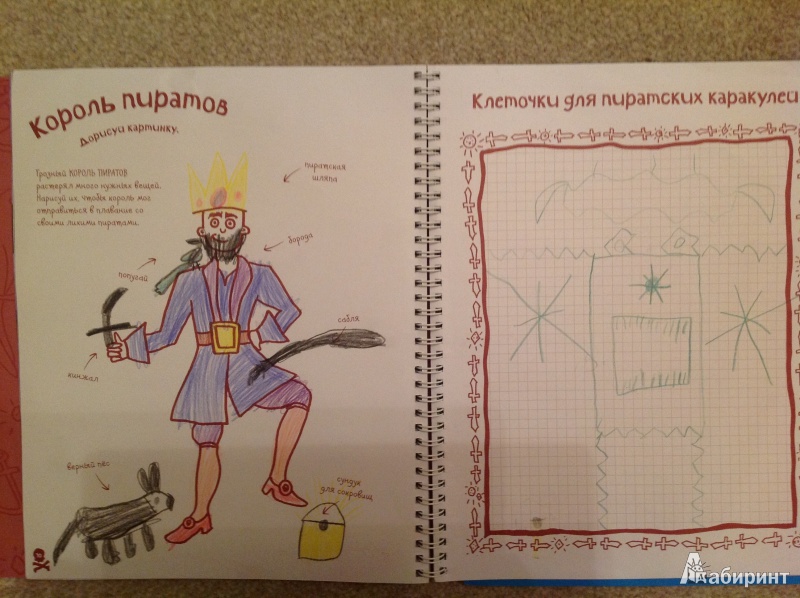 Король пиратов
Дорисуй картинку.
Грозный КОРОЛЬ ПИРАТОВ
растерял много нужных вещей.
Нарисуй их, чтобы король мог
отправиться в плавание со
своими лихими пиратами.
пиратская
шляпа
борода
попугай
сабля
кинжал
верный пёс
сундук
для сокровищ
Клеточки для пиратских каракулей
Лабиринт